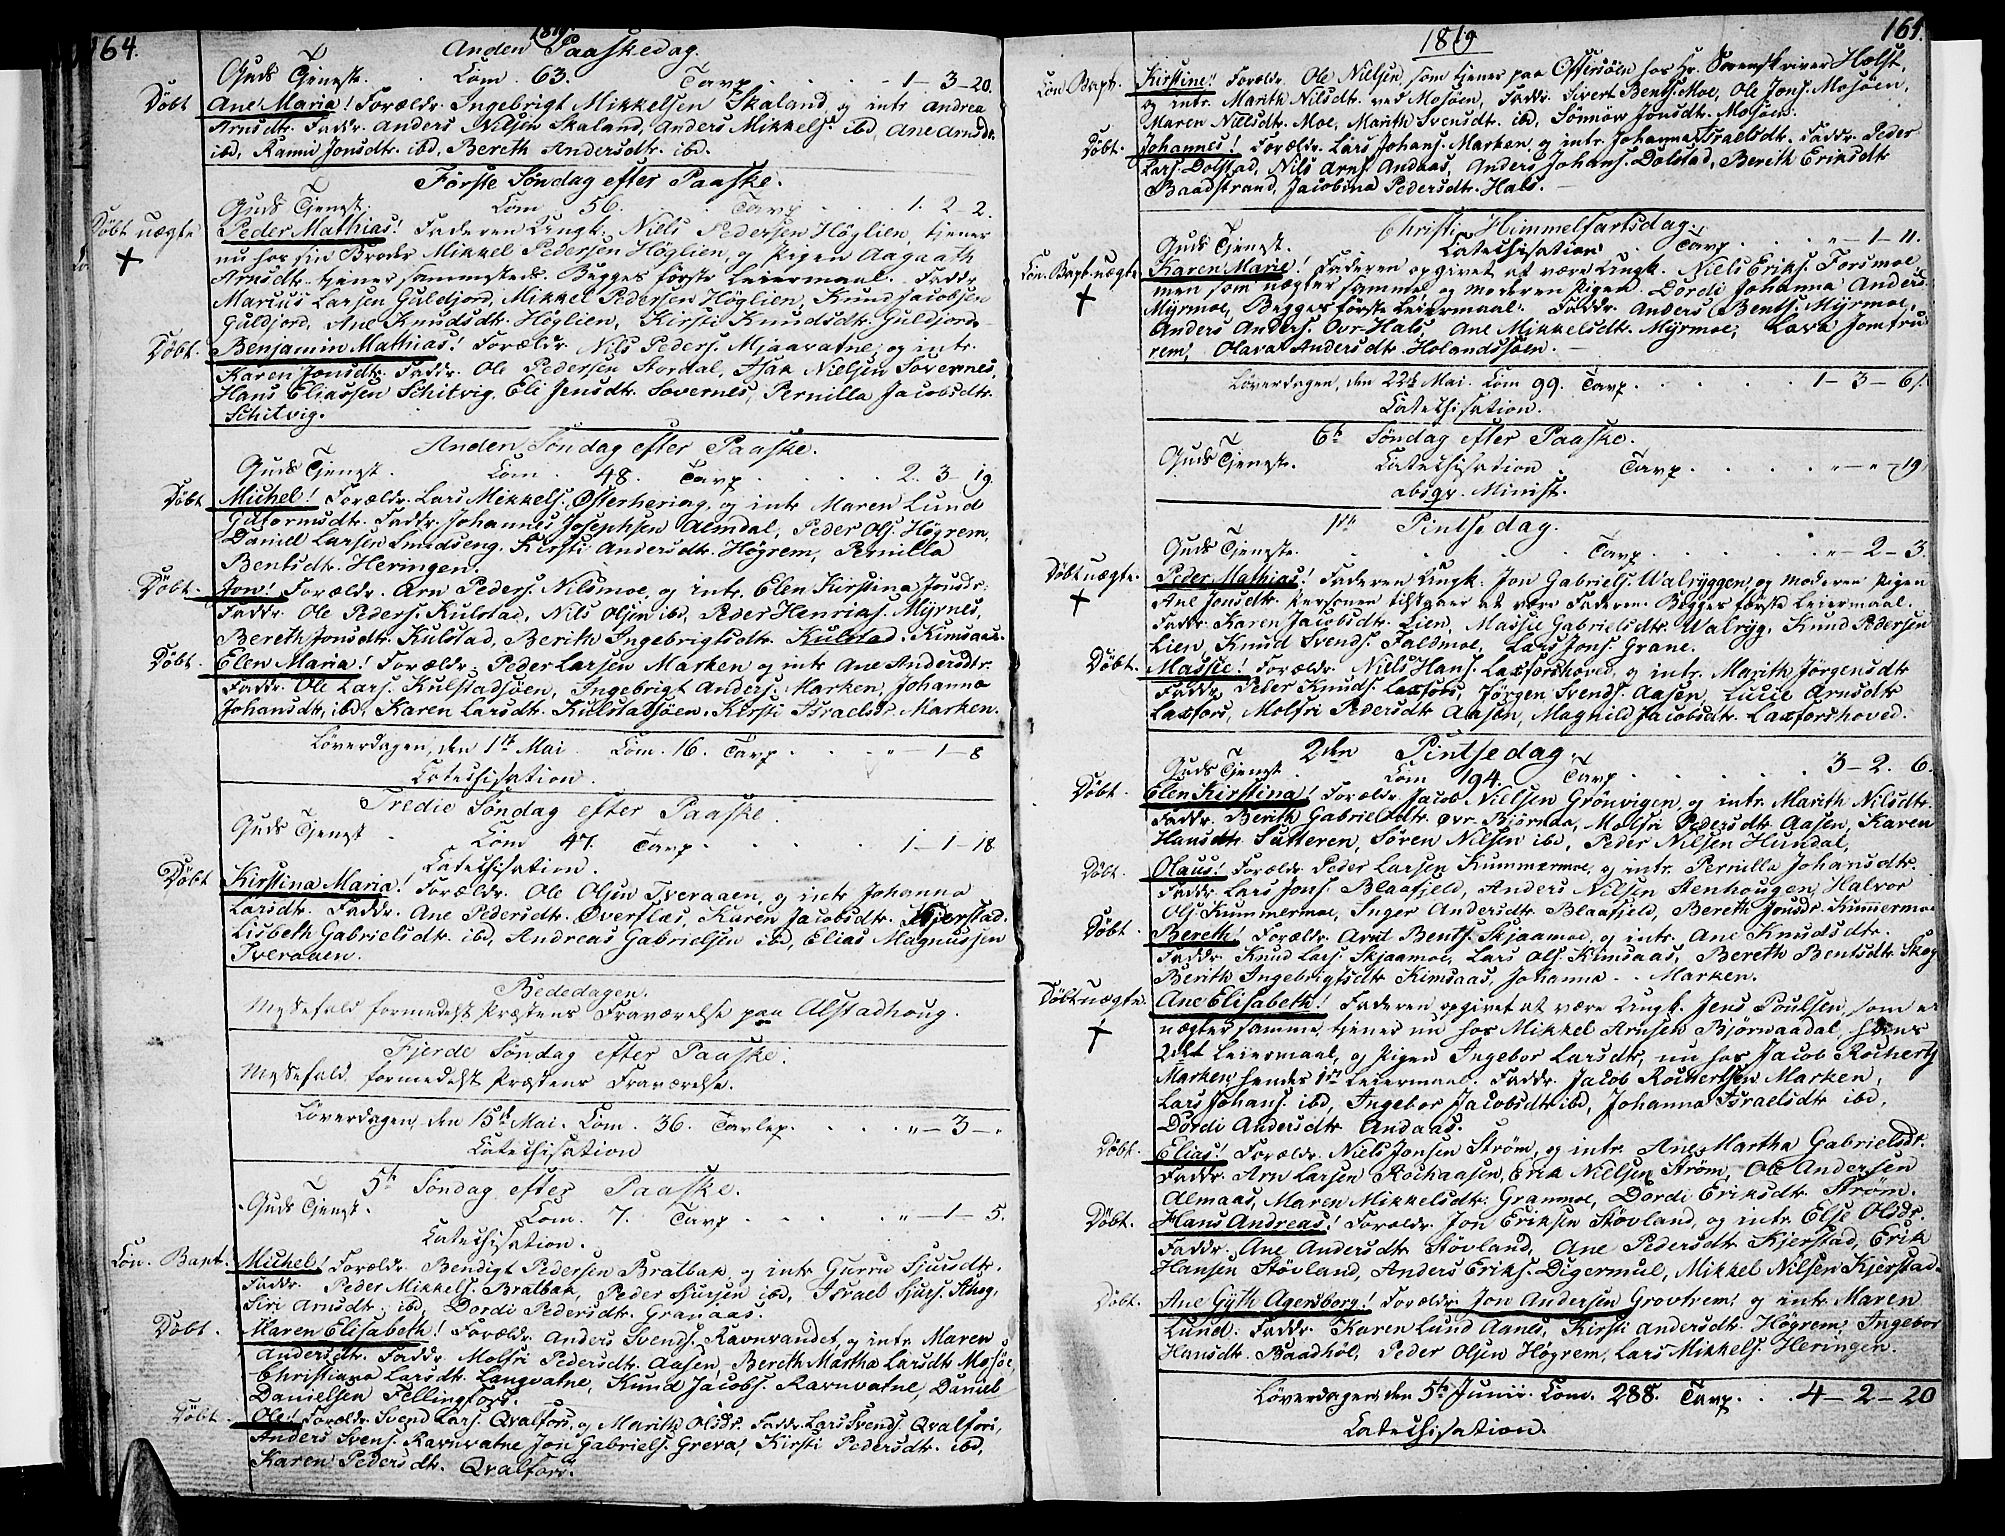 164.
1819
Anden Paaskedag.
Guds Tjeneste. Com. 63. Tavp. 1-3-20.
Døbt Ane Maria! Forældr. Ingebrigt Mikkelsen Skaland, og intr. Andrea
Arnsdtr. Faddr. Anders Nilsen Skaland, Anders Mikkels. ibd, Ane Arnsdtr.
ibd, Rannu Jonsdtr. ibd, Bereth Andersdtr. ibd.
Første Søndag efter Paaske.
Guds Tjenest. Com. 56. Tavp. 1. 2-2.
Døbt uægte Peder Mathias! Faderen Ungk. Niels Pedersen Höglien, tjener
nu hos sin Broder Mikkel Pedersen Höglien, og Pigen Aagaath
Arnsdtr. tjener sammesteds. Begges første Leiermaal. Faddr.
Marius Larsen Guldjord, Mikkel Pedersen Höglien, Knud Jacobsen
Guldjord, Ane Knudsdtr. Höglien, Kirsti Knudsdtr. Guldjord.
Døbt. Benjamin Mathias! Forældr. Nils Peders. Mjaavatne, og intr.
Karen Jonsdtr. Faddr. Ole Pedersen Stordal, Isak Nielsen Sovernes,
Hans Eliassen Schitvig, Eli Jensdtr. Sovernes, Pernilla Jacobsdtr.
Schitvig.
Anden Søndag efter Paaske.
Guds Tjenest. Com 48. Tavp. 2. 3-19.
Døbt Michel! Forældr. Lars Mikkels. Østerhering, og intr Maren Lund
Gutormsdtr. Faddr. Johannes Josephsen Almdal, Peder Ols. Högrem,
Daniel Larsen Smedseng. Kirsti Andersdtr. Högrem, Pernilla
Bentsdtr. Heringen.
Døbt. Jon! Forældr. Arn Peders. Nilsmoe, og intr. Elen Kirstina Jonsdr.
Faddr. Ole Peders. Kulstad, Nils Olsen ibd, Peder Henriks. Myrnes,
Bereth Jonsdtr. Kulstad, Berith Ingebrigtsdtr. Kulstad. Kimsaas.
Døbt. Elen Maria! Forældr. Peder Larsen Marken og intr. Ane Andersdtr.
Faddr. Ole Lars. Kulstadsöen, Ingebrigt Anders. Marken, Johanna
Johansdtr, ibd, Karen Larsdtr. Kulstadsöen. Kirsti Israelsdr. Marken.
Löverdagen, den 1te Mai Com. 16. Tavp. " - 1 - 8
Catechisation.
Tredie Söndag efter Paaske.
Guds Tjenest Com 47. Tavp. 1-1-18
Catechisation.
Døbt Kirstina Maria! Forældr. Ole Olsen Tveraaen, og intr Johanna
Larsdtr. Faddr. Ane Pedersdtr. Øverflas, Karen Jacobsdtr. Kjerstad.
Lisbeth Gabrielsdtr. ibd, Andreas Gabrielsen ibd, Elias Magnussen
Tveraaen.
Bededagen.
Messefald formedelst Præstens Fraværelse paa Alstadhoug.
Fjerde Söndag efter Paaske.
Messefald formedelst Præstens Fraværelse.
Löverdagen, den 15de Mai. Com. 36. Tavlep. " - 3 - "
Catechisation
5te Söndag efter Paaske.
Guds Tjenest. Com. 7. Tavp " - 1 - 5.
Catechisation.
Con. Bapt. Michel! Forældr. Bendigt Pedersen Bratbak, og intr Gurru Sjursdtr.
Faddr. Peder Mikkels. Bratbak, Peder Sjursen ibd, Israel Sjurs. Skog,
Siri Arnsdtr. ibd, Dordi Pedersdtr. Granaas.
Døbt. Maren Elisabeth! Forældr. Anders Svends. Ravnvandet, og intr Maren
Andersdtr. Faddr. Molfri Pedersdtr. Aasen, Bereth Martha Larsdtr Mosöe,
Christiana Larsdtr. Langvatne, Knud Jacobs. Ravnvatne, Daniel
Danielsen Fellingfors.
Døbt. Ole! Forældr. Svend Lars. Qvalfors, og Marith Olsdr. Faddr. Lars Svends. Qvalfors,
Anders Svens. Ravnvatne, Jon Gabriels. Greva, Kirsti Pedersdtr. ibd,
Karen Pedersdtr. Qvalfors.
1819
Con. Bapt. Kirstine! Forældr. Ole Nielsen, som tjener paa Offersöen hos Hr. Sorenskriver Holst,
og intr. Marith Nilsdtr. ved Mosöen, Faddr. Sivert Bents. Moe, Ole Jons. Mosöen,
Maren Nielsdtr. Moe, Marith Svensdtr. ibd, Sönnow Jonsdtr. Mosöen.
Døbt. Johannes! Forældr. Lars Johans. Marken, og intr. Johanna Israelsdtr. Faddr. Peder
Lars. Dolstad, Nils Arns. Andaas, Anders Johans. Dolstad, Bereth Eriksdtr
Baadstrand, Jacobina Pedersdtr. Hals.
Christi Himmelfartsdag.
Guds Tjenest. Catechisation Tavp. " - 1 - 11.
Con. Bapt. uægte Karen Marie! Faderen opgivet at være Ungk. Niels Eriks. Forsmoe
men som nægter samme og Moderen Pigen Dordi Johanna Anders.
Myrmoe, Begges første Leiermaal. Faddr. Anders Bents. Myrmoe,
Anders Anders. Ovr-Hals, Ane Mikkelsdtr. Myrmoe,
rem, Olava Andersdtr. Holandssöen.
Löverdagen, den 22de Mai. Com 99. Tavp. 1-3-6.
Catechisation.
6te Söndag efter Paaske.
Guds Tjenste. Catechisation. Tavp. " - " - 19
absqv. Minist.
1ste Pintsedag.
Guds Tjenste. Tavp. " - 2 - 3.
Døbt uægte. Peder Mathias! Faderen Ungk. Jon Gabriels. Walryggen, og Moderen Pigen
Ane Jonsdtr. Personen tilstaaer at være Faderen. Begges første Leiermaal.
Faddr. Karen Jacobsdtr. Lien, Massie Gabrielsdtr. Walryg, Knud Pedersen
Lien, Knud Svends. Faldmoe, Lars Jons. Grane.
Døbt. Massie! Forældr. Niels Hans. Laxforshoved, og intr. Marith Jörgensdtr
Faddr. Peder Knuds. Laxfors, Jörgen Svends. Aasen, Lucie Arnsdtr
Laxfors, Molfri Pedersdtr Aasen, Magnild Jacobsdtr. Laxforshoved.
2den Pintsedag.
Guds Tjenest Com 194. Tavp. 3-2. 6.
Døbt. Elen Kirstina! Forældr. Jacob Nielsen Grönvigen, og intr. Marith Nilsdtr.
Faddr. Berith Gabrielsdtr. Ovr-Björnaa, Molfri Pedersdtr Aasen, Karen
Hansdtr Sutteren, Sören Nilsen ibd, Peder Nilsen Hundal.
Døbt. Olaus! Forældr. Peder Larsen Kummermoe, og intr. Pernilla Johansdtr.
Faddr. Lars Jons. Blaafjeld, Anders Nilsen Stenhougen, Halvor
Ols. Kummermoe, Inger Andersdtr Blaafjeld, Bereth Jonsdr. Kummermoe
Døbt. Bereth! Forældr. Arnt Bents. Skjaamoe, og intr. Ane Knudsdtr.
Faddr. Knud Lars. Skjaamoe, Lars Ols. Kimsaas, Bereth Bentsdtr Skog
Berith Ingebrigtsdtr Kimsaas, Johanna - - Marken.
Døbt uægte. Ane Elisabeth! Faderen opgivet at være Ungk. Jens Poulsen, som er
nægter samme, tjener nu hos Mikkel Arnsen Björnaadal, hans
2det Leiermaal, og Pigen Ingebor Larsdtr, nu hos Jacob Rocherts.
Marken, hendes 1ste Leiermaal. Faddr. Jacob Rochertsen Marken,
Lars Johans. ibd, Ingebor Jacobsdtr ibd, Johanna Israelsdtr ibd,
Dordi Andersdtr Andaas.
Døbt. Elias! Forældr. Niels Jonsen Ström, og intr. Ane Martha Gabrielsdr.
Faddr. Arn Larsen Rochaasen, Erik Nielsen Ström, Ole Andersen
Almaas, Maren Mikkelsdtr. Granmoe, Dordi Eriksdtr Ström.
Døbt. Hans Andreas! Forældr. Jon Eriksen Stövland, og intr Else Olsdr.
Faddr. Ane Andersdtr Stövland, Ane Pedersdtr Kjerstad, Erik
Hansen Stövland, Anders Eriks. Digermul, Mikkel Nilsen Kjerstad.
Døbt. Ane Gyth Agersborg! Forældr. Jon Andersen Grovtrem, og intr. Maren
Lund. Faddr. Karen Lund Aanes, Kirsti Andersdtr Högrem, Ingebor
Hansdtr. Baadhöl, Peder Olsen Högrem, Lars Mikkels. Heringen.
Löverdagen, den 5te Junii. Com. 288. Tavp. 4-2-20
Catechisation.